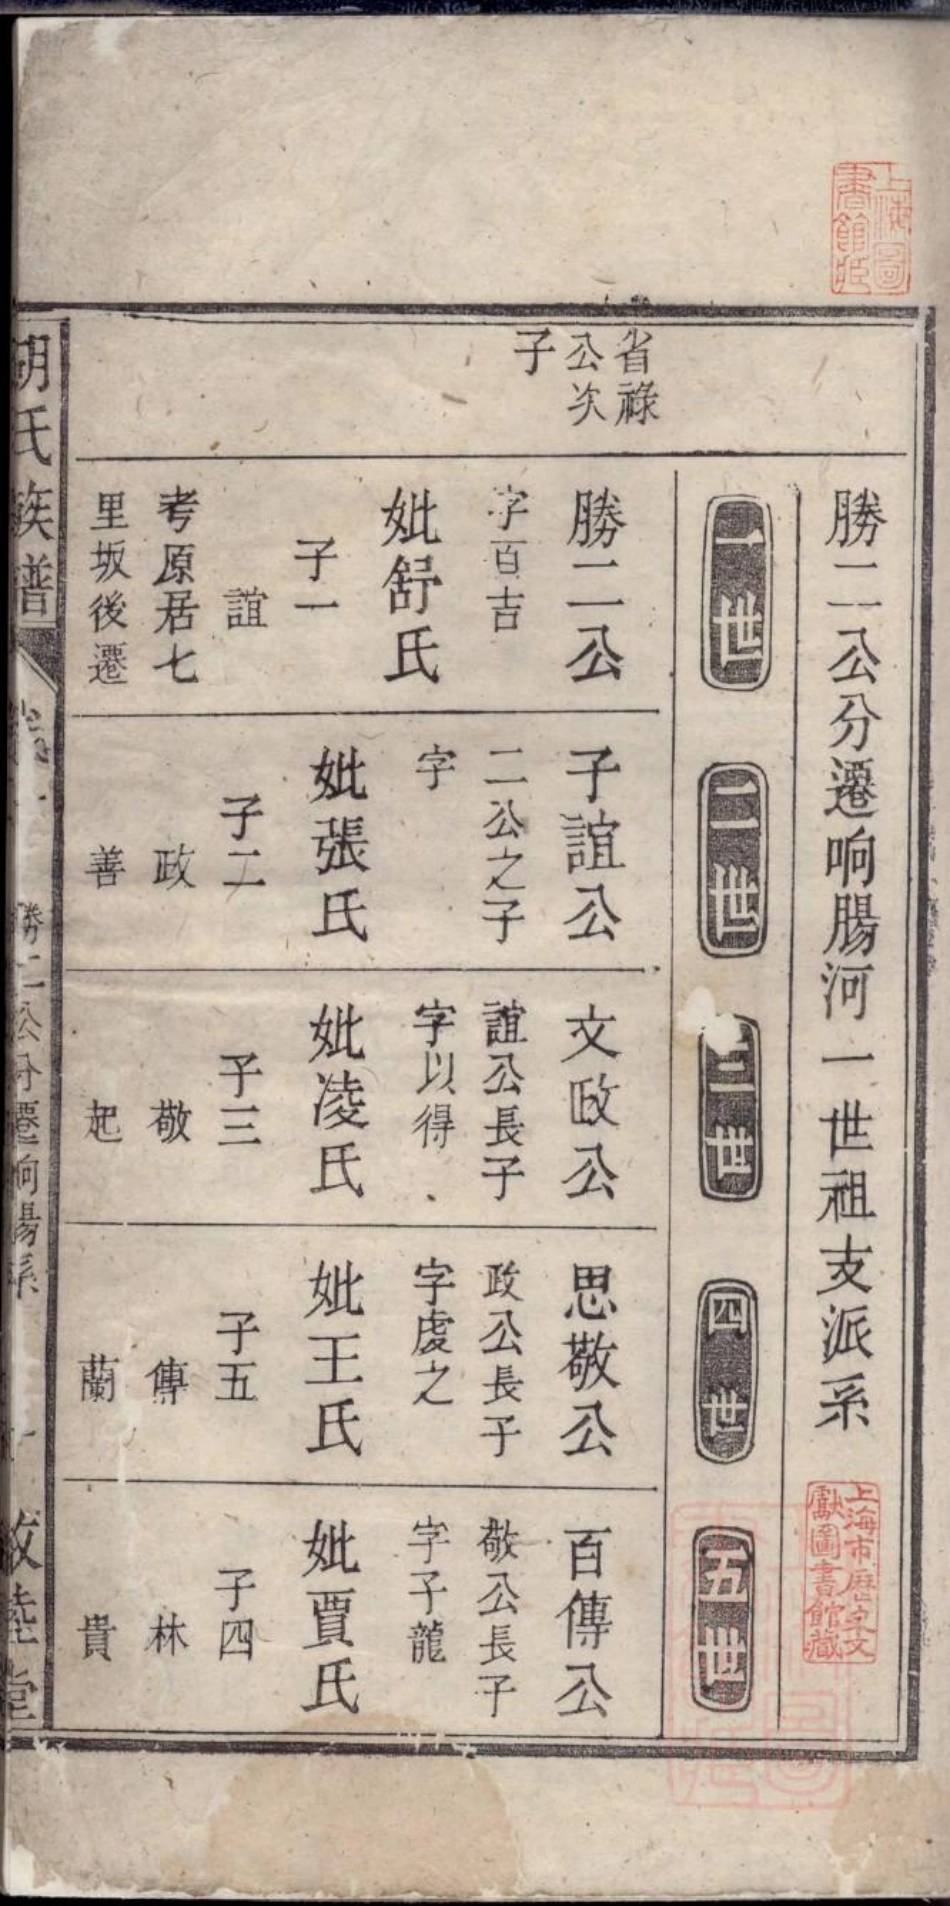 上海圖
書館藏
勝二公分遷响腸河一世祖支派系
上海市歷史文
獻圖書館藏
一世
二世
三世
四世
五世
省祿
公次
子
勝二公
字百吉
妣舒氏
子一
誼
考原居七
里坂後遷
子誼公
二公之子
字
妣張氏
子二
政
善
文政公
誼公長子
字以得
妣凌氏
子三
敬
起
思敬公
政公長子
字虔之
妣王氏
子五
傳
蘭
百傳公
敬公長子
字子龍
妣賈氏
子四
林
貴
胡氏族譜
勝二公分遷响腸系
敦睦堂